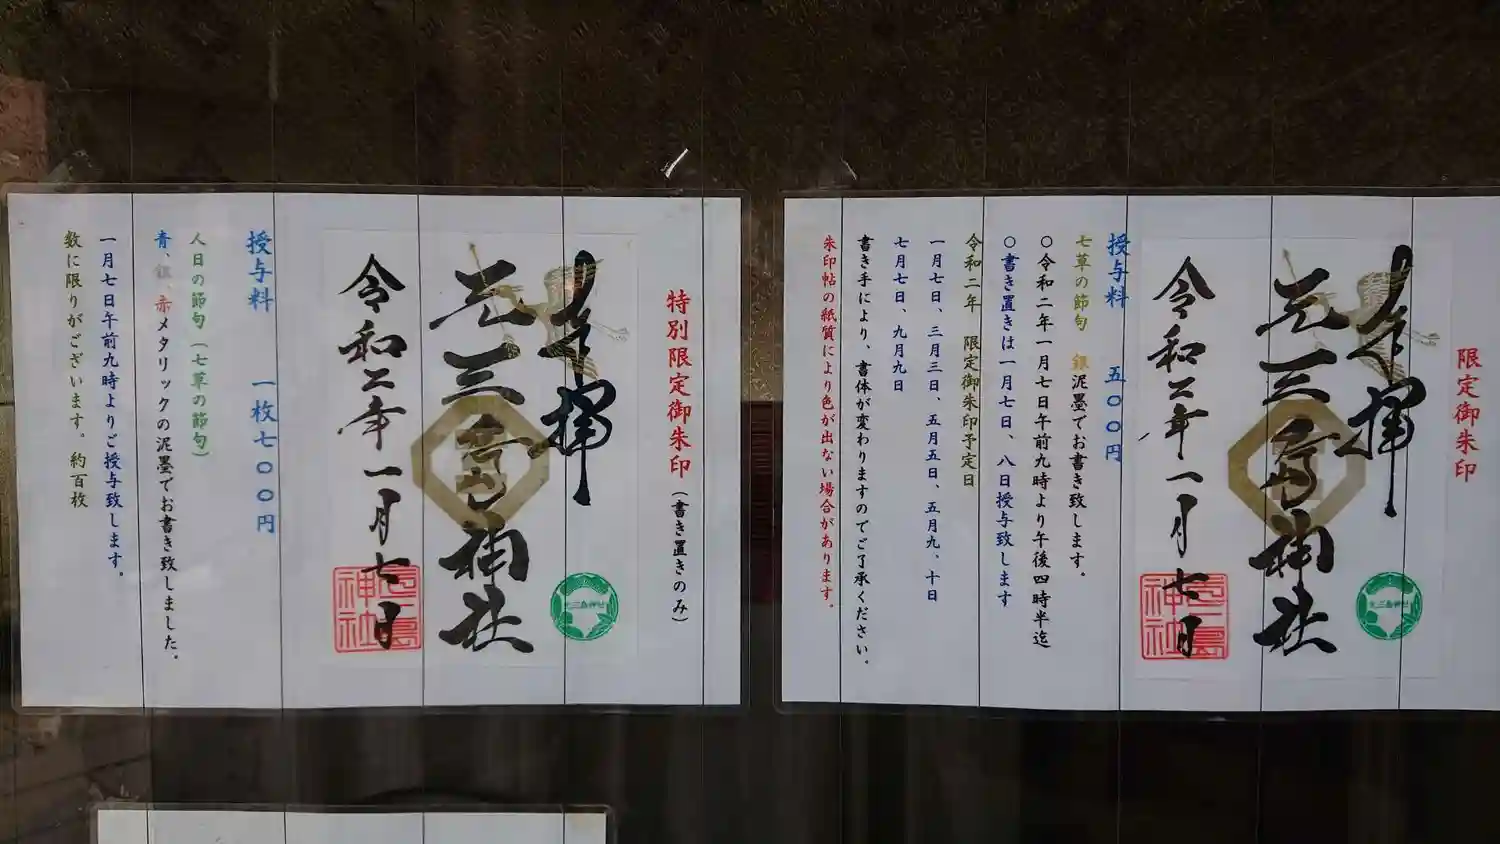 限定御朱印
奉拝
元三島神社
元三島神社
令和二年一月七日
三島神社
授与料　五〇〇円
七草の節句　銀泥墨でお書き致します。
〇令和二年一月七日午前九時より午後四時半迄
〇書き置きは一月七日、八日授与致します
令和二年　限定御朱印予定日
一月七日、三月三日、五月五日、五月九、十日
七月七日、九月九日
書き手により、書体が変わりますのでご了承ください。
朱印帖の紙質により色が出ない場合があります。
特別限定御朱印（書き置きのみ）
奉拝
元三島神社
元三島神社
令和二年一月七日
三島神社
授与料　一枚七〇〇円
人日の節句（七草の節句）
青、銀、赤メタリックの泥墨でお書き致しました。
一月七日午前九時よりご授与致します。
数に限りがございます。約百枚